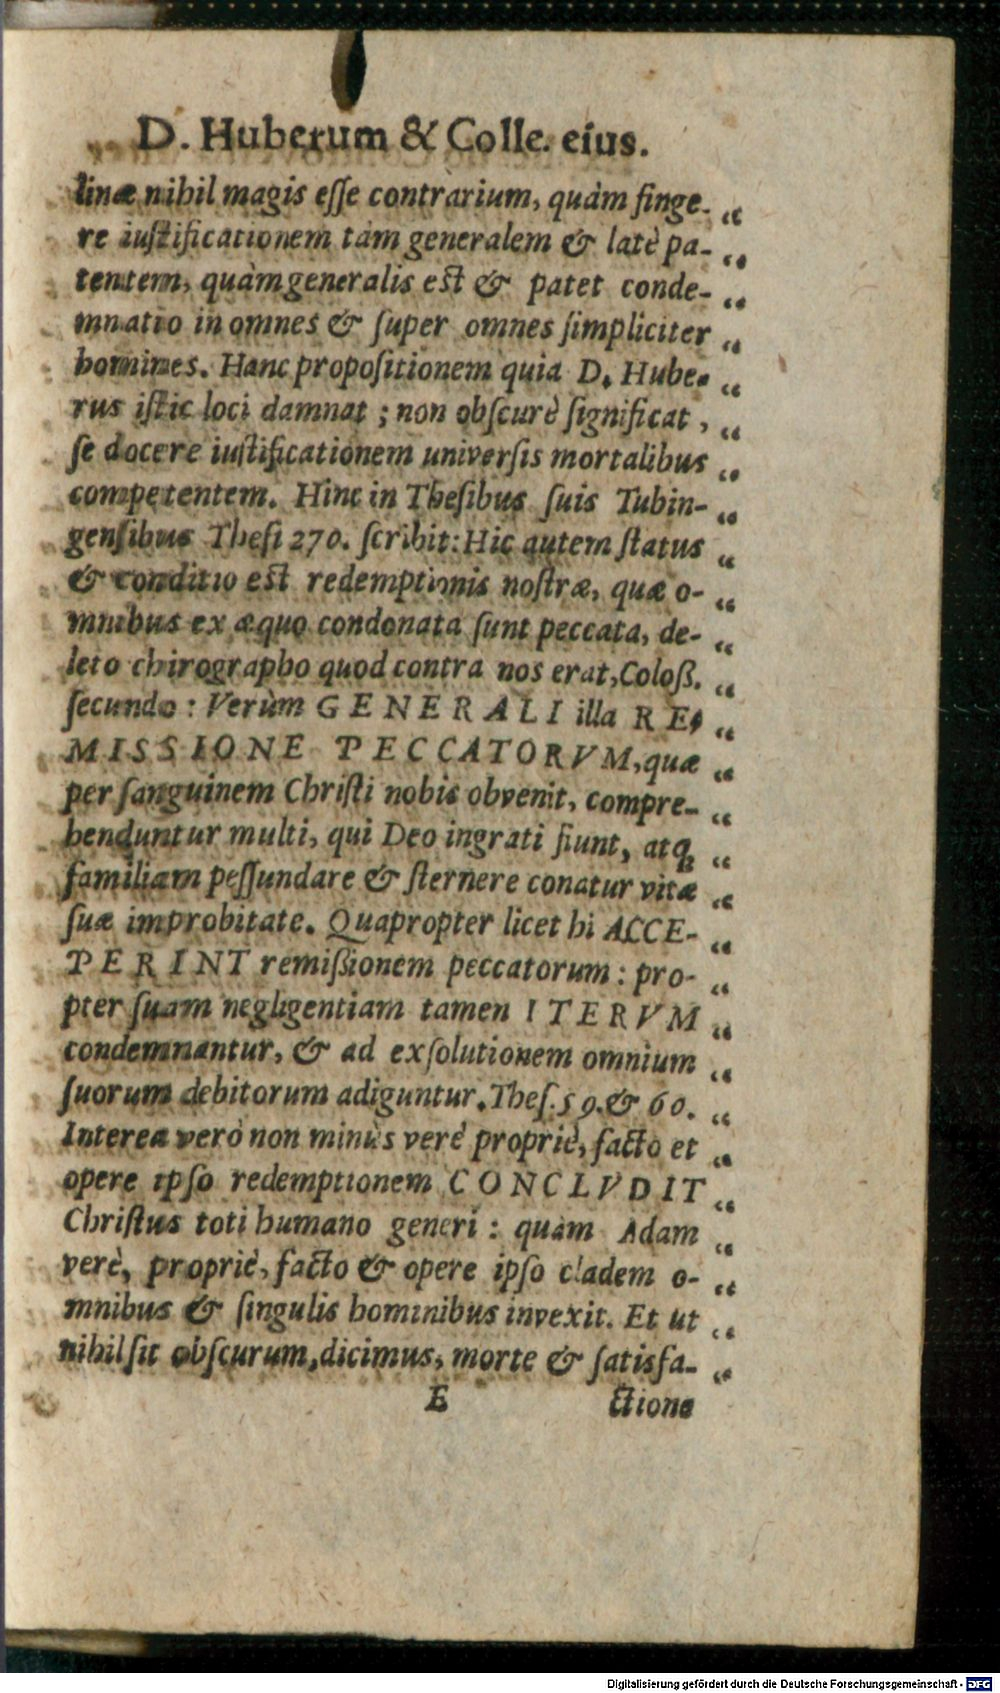 D. Huberum & Colle. eius.
linæ nihil magis eſſe contrarium, quàm finge- “
re iuſtificationem tàm generalem & latè pa- “
tentem, quàm generalis est & patet conde- “
mnatio in omnes & ſuper omnes ſimpliciter “
homines. Hanc propoſitionem quia D. Hube- “
rus iſtic loci damnat ; non obſcurè ſignificat , “
ſe docere iuſtificationem univerſis mortalibus “
competentem. Hinc in Theſibus ſuis Tubin- “
genſibus Theſi 270. ſcribit: Hic autem ſtatus “
& conditio est redemptionis noſtræ, quæ o- “
mnibus ex æquo condonata ſunt peccata, de- “
leto chirographo quod contra nos erat, Coloß. “
ſecundo : Verùm GENERALI illa RE- “
MISSIONE PECCATORVM, quæ “
per ſanguinem Chriſti nobis obvenit, compre- “
henduntur multi, qui Deo ingrati fiunt, atq; “
familiam peſſundare & ſternere conatur vitæ “
ſuæ improbitate. Quapropter licet hi ACCE- “
PERINT remißionem peccatorum : pro- “
pter ſuam negligentiam tamen ITERVM “
condemnantur, & ad exſolutionem omnium “
ſuorum debitorum adiguntur. Theſ. 59. & 60. “
Interea verò non minùs verè propriè, facto et “
opere ipſo redemptionem CONCLVDIT “
Chriſtus toti humano generi : quàm Adam “
verè, propriè, facto & opere ipſo cladem o- “
mnibus & ſingulis hominibus invexit. Et ut “
nihil ſit obſcurum, dicimus, morte & ſatisfa- “
E ctione
Digitalisierung gefördert durch die Deutsche Forschungsgemeinschaft - DFG